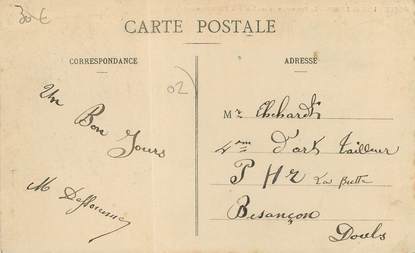 30 €
CARTE POSTALE
CORRESPONDANCE
ADRESSE
02)
Un
Bon
Jours
Mr
4eme d'art tailleur
P H R La Butte
Besançon
Doubs